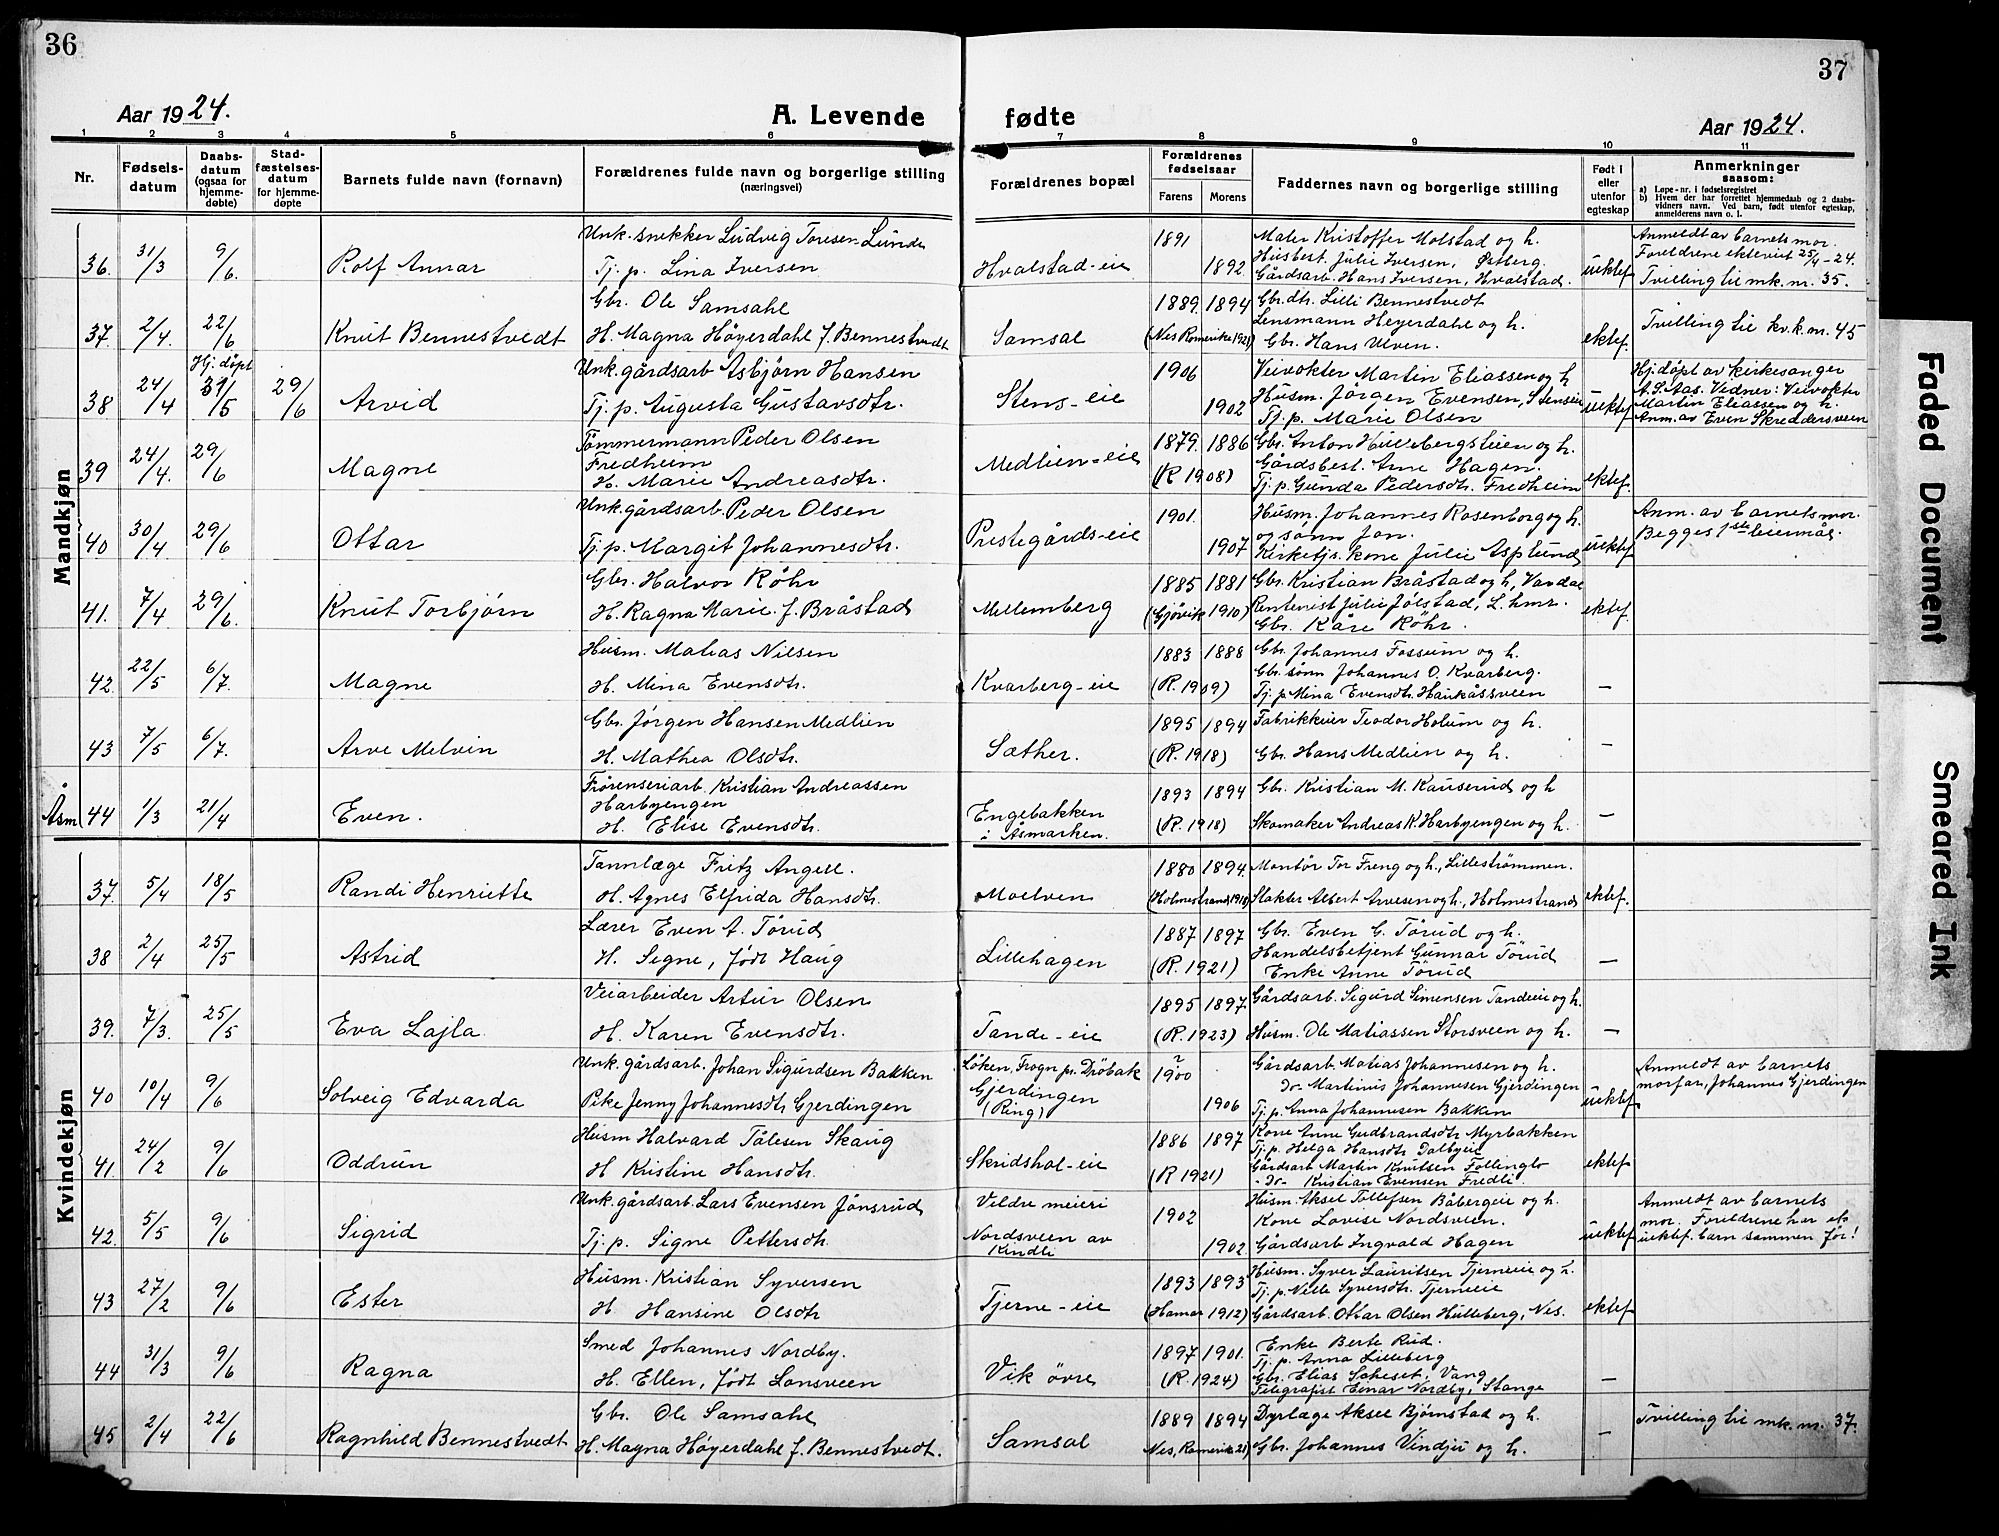 36
37
Aar 1924.
A. Levende fødte
Aar 1924.
1 2 3 4 5 6 7 8 9 10 11
Nr.
Fødsels-
datum
Daabs-
datum
(ogsaa for
hjemme-
døbte)
Stad-
fæstelses-
datum
for hjemme-
døpte
Barnets fulde navn (fornavn)
Forældrenes fulde navn og borgerlige stilling
(næringsvei)
Forældrenes bopæl
Forældrenes
fødselsaar
Farens Morens
Faddernes navn og borgerlige stilling
Født i
eller
utenfor
egteskap
Anmerkninger
saasom:
a) Løpe-nr. i fødselsregistret
b) Hvem der har forrettet hjemmedaab og 2 daabs-
vidners navn. Ved barn, født utenfor egteskap,
anmelderens navn o. l.
Mandkjøn
36. 31/3 9/6. Rolf Annar
Unk. snekker Ludvig Toresen Lunde
Tj. p. Lina Iversen
Hvalstad-eie
1891 1892
Maler Kristoffer Molstad og h.
Husbest. Julie Iversen, Østberg.
Gårdsarb. Hans Iversen, Hvalstad.
uektef
Anmeldt av barnets mor.
Foreldrene ekteviet 25/4-24.
Tvilling til mk. nr. 35.
37. 2/4. 22/6 Knut Bennestvedt
Gbr. Ole Samsahl
H. Magna Høyerdahl f. Bennestvedt
Samsal
1889. 1894
(Nes Romerike 1921)
Gbr.dtr. Lilli Bennestvedt
Lensmann Heyerdahl og h.
Gbr. Hans Ulven.
ektef.
Tvilling til kv.k. nr. 45
38 24/4 Hj. døpt 31/5 29/6 Arvid
Unk. gårdsarb Asbjørn Hansen
Tj. p. Augusta Gustavsdtr.
Stens-eie
1906 1902
Veivokter Martin Eliassen og h
Husm. Jørgen Evensen, Stenseie
Tj. p. Marie Olsen
uektef
Hj. døpt av kirkesanger
A. S. Aas. Vidner: Veivokter
Martin Eliassen og h.
Anm. av Even Skreddersveen
39 24/4. 29/6 Magne
Tømmermann Peder Olsen
Fredheim
H. Marie Andreasdtr.
Medlien-eie
1879. 1886
(R 1908)
Gbr. Anton Hulebergsteien og h.
Gårdsbest. Arne Hagen.
Tj. p. Gunda Pedersdtr. Fredheim
ektef.
40 30/4. 29/6 Ottar
Unk. gårdsarb. Peder Olsen
Tj. p. Margit Johannesdtr.
Prestegårds-eie
1901. 1907
Husm. Johannes Rosenborg og h.
og sønn Jon.
Kirketj. kone Julie Asplund
uektef
Anm. av barnets mor.
Begges 1ste leiermål.
41. 7/4 29/6. Knut Torbjørn
Gbr. Halvor Røhr
H. Ragna Marie f. Bråstad
Mellemberg
1885 1881
(Gjøvik 1910)
Gbr. Kristian Bråstad og h, Vardal
Rentenist Julie Jølstad, L.hmr.
Gbr. Kåre Røhr.
ektef.
42. 22/5 6/7. Magne
Husm. Matias Nilsen
H. Mina Evensdtr.
Kvarberg-eie
1883 1888
(R. 1909)
Gbr. Johannes Fossum og h.
Gbr. sønn Johannes O. Kvarberg.
Tj. p. Mina Evensdtr. Haukåssveen
—
43 7/5 6/7. Arve Melvin
Gbr. Jørgen Hansen Medlien
H. Mathea Olsdtr.
Sæther.
1895 1894
(R. 1918)
Fabrikkeier Teodor Holum og h.
Gbr. Hans Medlien og h.
—
Åsm 44 1/3 21/4 Even.
Farenseriarb. Kristian Andreassen
Harbyengen
H. Elise Evensdtr.
Engebakken
i Åsmarken.
1893 1894
(R. 1918)
Gbr. Kristian M. Kauserud og h
Skomaker Andreas K. Harbyengen og h.
—
Kvindekjøn
37. 5/4 18/5 Randi Henriette
Tannlæge Fritz Angell.
H. Agnes Elfrida Hansdtr.
Moelven
1880 1894.
(Holmestrand 1918)
Montør Tor Freng og h., Lillestrømmen.
Slakter Albert Arvesen og h., Holmestrand
ektef.
38 2/4 25/5 Astrid
Lærer Even A. Tørud
H. Signe, født Haug
Lillehagen
1887 1897
(R. 1921)
Gbr. Even G. Tørud og h.
Handelsbetjent Gunnar Tørud
Enke Anne Tørud
—
39. 7/3. 25/5 Eva Lajla
Veiarbeider Artur Olsen
H. Karen Evensdtr.
Tande-eie
1895 1897.
(R. 1923)
Gårdsarb. Sigurd Simensen Tandeie og h.
Husm. Ole Matiassen Storsveen og h.
—
40 10/4 9/6 Solveig Edvarda
Unk. gårdsarb. Johan Sigurdsen Bakken
Pike Jenny Johannesdtr Gjerdingen
Løken, Frogn pr. Drøbak
Gjerdingen
(Ring)
1900 1906
Gårdsarb. Matias Johannesen og h.
Do. Martinus Johannesen Gjerdingen
Tj. p. Anna Johannesen Bakken
uektef
Anmeldt av barnets
morfar, Johannes Gjerdingen
41. 24/2 9/6 Oddrun
Husm Halvard Tålesen Skaug
H Kristine Hansdtr.
Skridshol-eie
1886 1897
(R 1921)
Kone Anne Gudbrandsdtr Myrbakken
Tj. p. Helga Hansdtr Dalbyeie
Gårdsarb Martin Knutsen Follinglo
-do- Kristian Evensen Fredli
ektef
42. 5/5 9/6 Sigrid
Unk. gårdsarb. Lars Evensen Jønsrud
Tj. p. Signe Pettersdtr.
Veldre meieri
Nordsveen av
Kindli
1902 1902
Husm. Aksel Tollefsen Båbergeie og h.
Kone Lovise Nordsveen.
Gårdsarb Ingvald Hagen
uektef
Anmeldt av barnets
mor. Foreldrene har et
uektef. barn sammen før!
43 27/2 9/6 Ester
Husm. Kristian Syversen
H. Hansine Olsdtr
Tjerne-eie
1893 1893
(Hamar 1912)
Husm. Syver Lauritsen Tjerneie og h.
Tj. p. Nelle Syversdtr. Tjerneie
Gårdsarb. Ottar Olsen Hulleberg, Nes.
ektef
44 31/3 9/6 Ragna
Smed Johannes Nordby.
H. Ellen, født Lonsveen
Vik øvre
1897 1901.
(R. 1924)
Enke Berte Rud.
Tj. p. Anna Lilleberg
Gbr. Elias Sæheset, Vang
Telegrafist Einar Nordby, Stange
—
45 2/4 22/6 Ragnhild Bennestvedt
Gbr. Ole Samsahl
H. Magna Høyerdahl f. Bennestvedt.
Samsal
1889 1894
Nes, Romerike 21)
Dyrlæge Aksel Bjørnstad og h.
Gbr. Johannes Vindju og h.
—
Tvilling til mk. nr. 37.
Faded Document
Smeared Ink